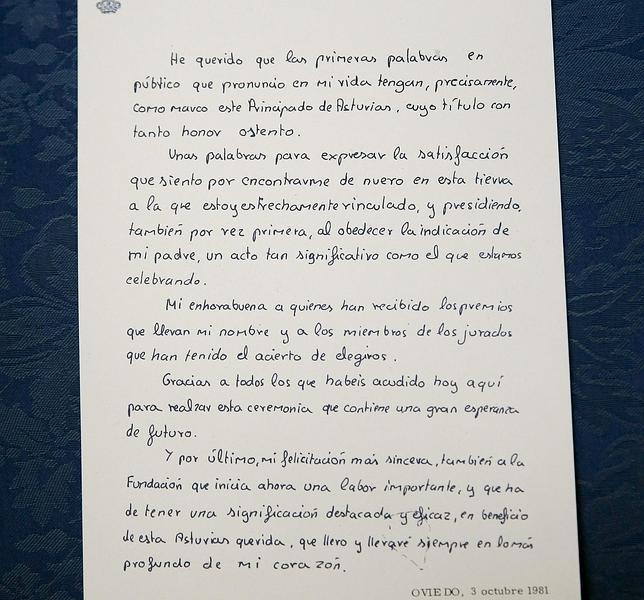 He querido que las primeras palabras en
público que pronuncio en mi vida tengan, precisamente,
como marco este Principado de Asturias, cuyo título con
tanto honor ostento.
Unas palabras para expresar la satisfacción
que siento por encontrarme de nuevo en esta tierra
a la que estoy estrechamente vinculado, y presidiendo,
también por vez primera, al obedecer la indicación de
mi padre, un acto tan significativo como el que estamos
celebrando.
Mi enhorabuena a quienes han recibido los premios
que llevan mi nombre y a los miembros de los jurados
que han tenido el acierto de elegiros.
Gracias a todos los que habeis acudido hoy aquí
para realzar esta ceremonia que contiene una gran esperanza
de futuro.
Y por último, mi felicitación mas sincera, también a la
Fundación que inicia ahora una labor importante, y que ha
de tener una significación destacada y eficaz, en beneficio
de esta Asturias querida, que llevo y llevaré siempre en lo más
profundo de mi corazón.
OVIEDO, 3 octubre 1981